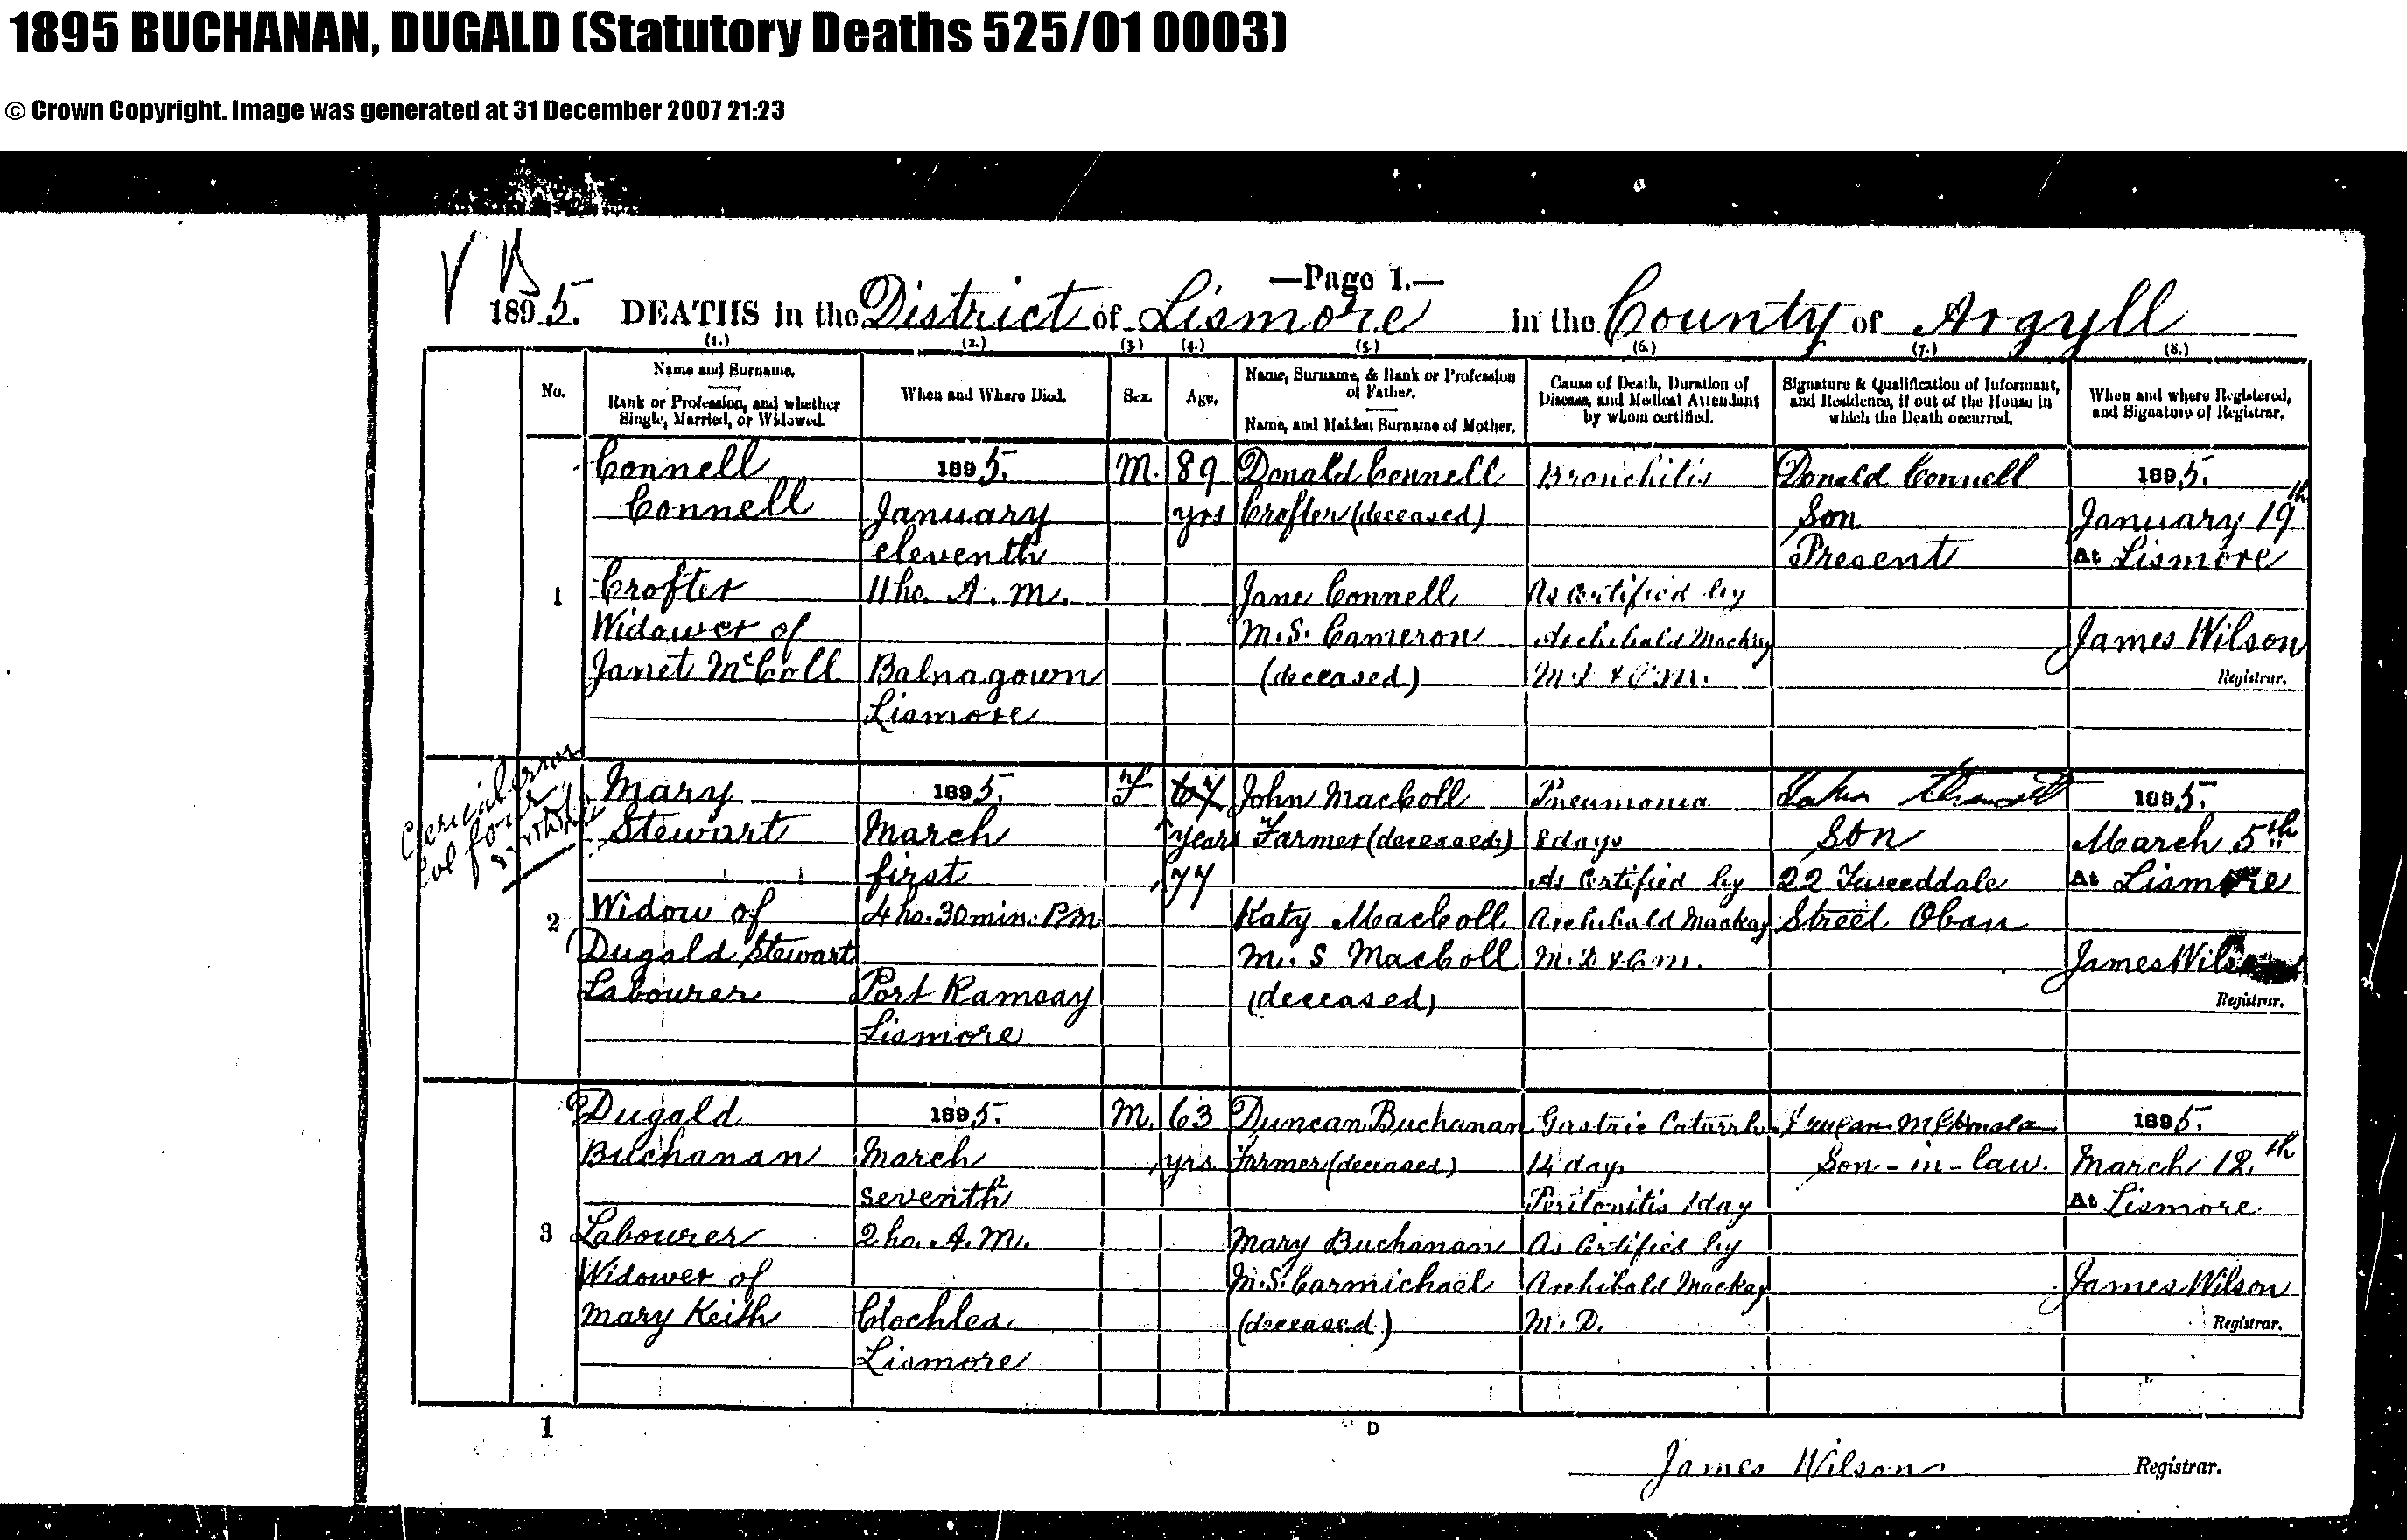 1895 BUCHANAN, DUGALD (Statutory Deaths 525/01 0003)
© Crown Copyright. Image was generated at 31 December 2007 21:23
—Page 1.—
1895. DEATHS in the District of Lismore in the County of Argyll
(1.) (2.) (3.) (4.) (5.) (6.) (7.) (8.)
No.
Name and Surname.
Rank or Profession, and whether
Single, Married, or Widowed.
When and Where Died.
Sex.
Age.
Name, Surname, & Rank or Profession
of Father.
Name, and Maiden Surname of Mother.
Cause of Death, Duration of
Disease, and Medical Attendant
by whom certified.
Signature & Qualification of Informant,
and Residence, if out of the House in
which the Death occurred.
When and where Registered,
and Signature of Registrar.
1
Connell
Connell
Crofter
Widower of
Janet McColl
1895.
January
eleventh
11 ho. A. M.
Balnagown
Lismore
M.
89
yrs
Donald Connell
Crofter (deceased)
Jane Connell
M.S. Cameron
(deceased)
Bronchitis
As certified by
Archibald Mackay
M.D. & C.M.
Donald Connell
Son
Present
1895.
January 19th
At Lismore
James Wilson
Registrar.
Clerical error
Col four
2
Mary
Stewart
Widow of
Dugald Stewart
Labourer
1895.
March
first
4 ho. 30 min. P.M.
Port Ramsay
Lismore
F
67
years
77
John MacColl
Farmer (deceased)
Katy MacColl
M. S MacColl
(deceased)
Pneumonia
8 days
As certified by
Archibald Mackay
M. D. & C.M.
Son
22 Tweeddale
Street Oban
1895.
March 5th
At Lismore
James Wilson
Registrar.
3
Dugald
Buchanan
Labourer
Widower of
Mary Keith
1895.
March
seventh
2 ho. A.M.
Clochlea
Lismore
M.
63
yrs
Duncan Buchanan
Farmer (deceased)
Mary Buchanan
M.S. Carmichael
(deceased)
Gastric Catarrh
14 days
Peritonitis 1 day
As certified by
Archibald Mackay
M. D.
Son-in-law.
1895.
March 12th
At Lismore
James Wilson
Registrar.
1
D
James Wilson Registrar.